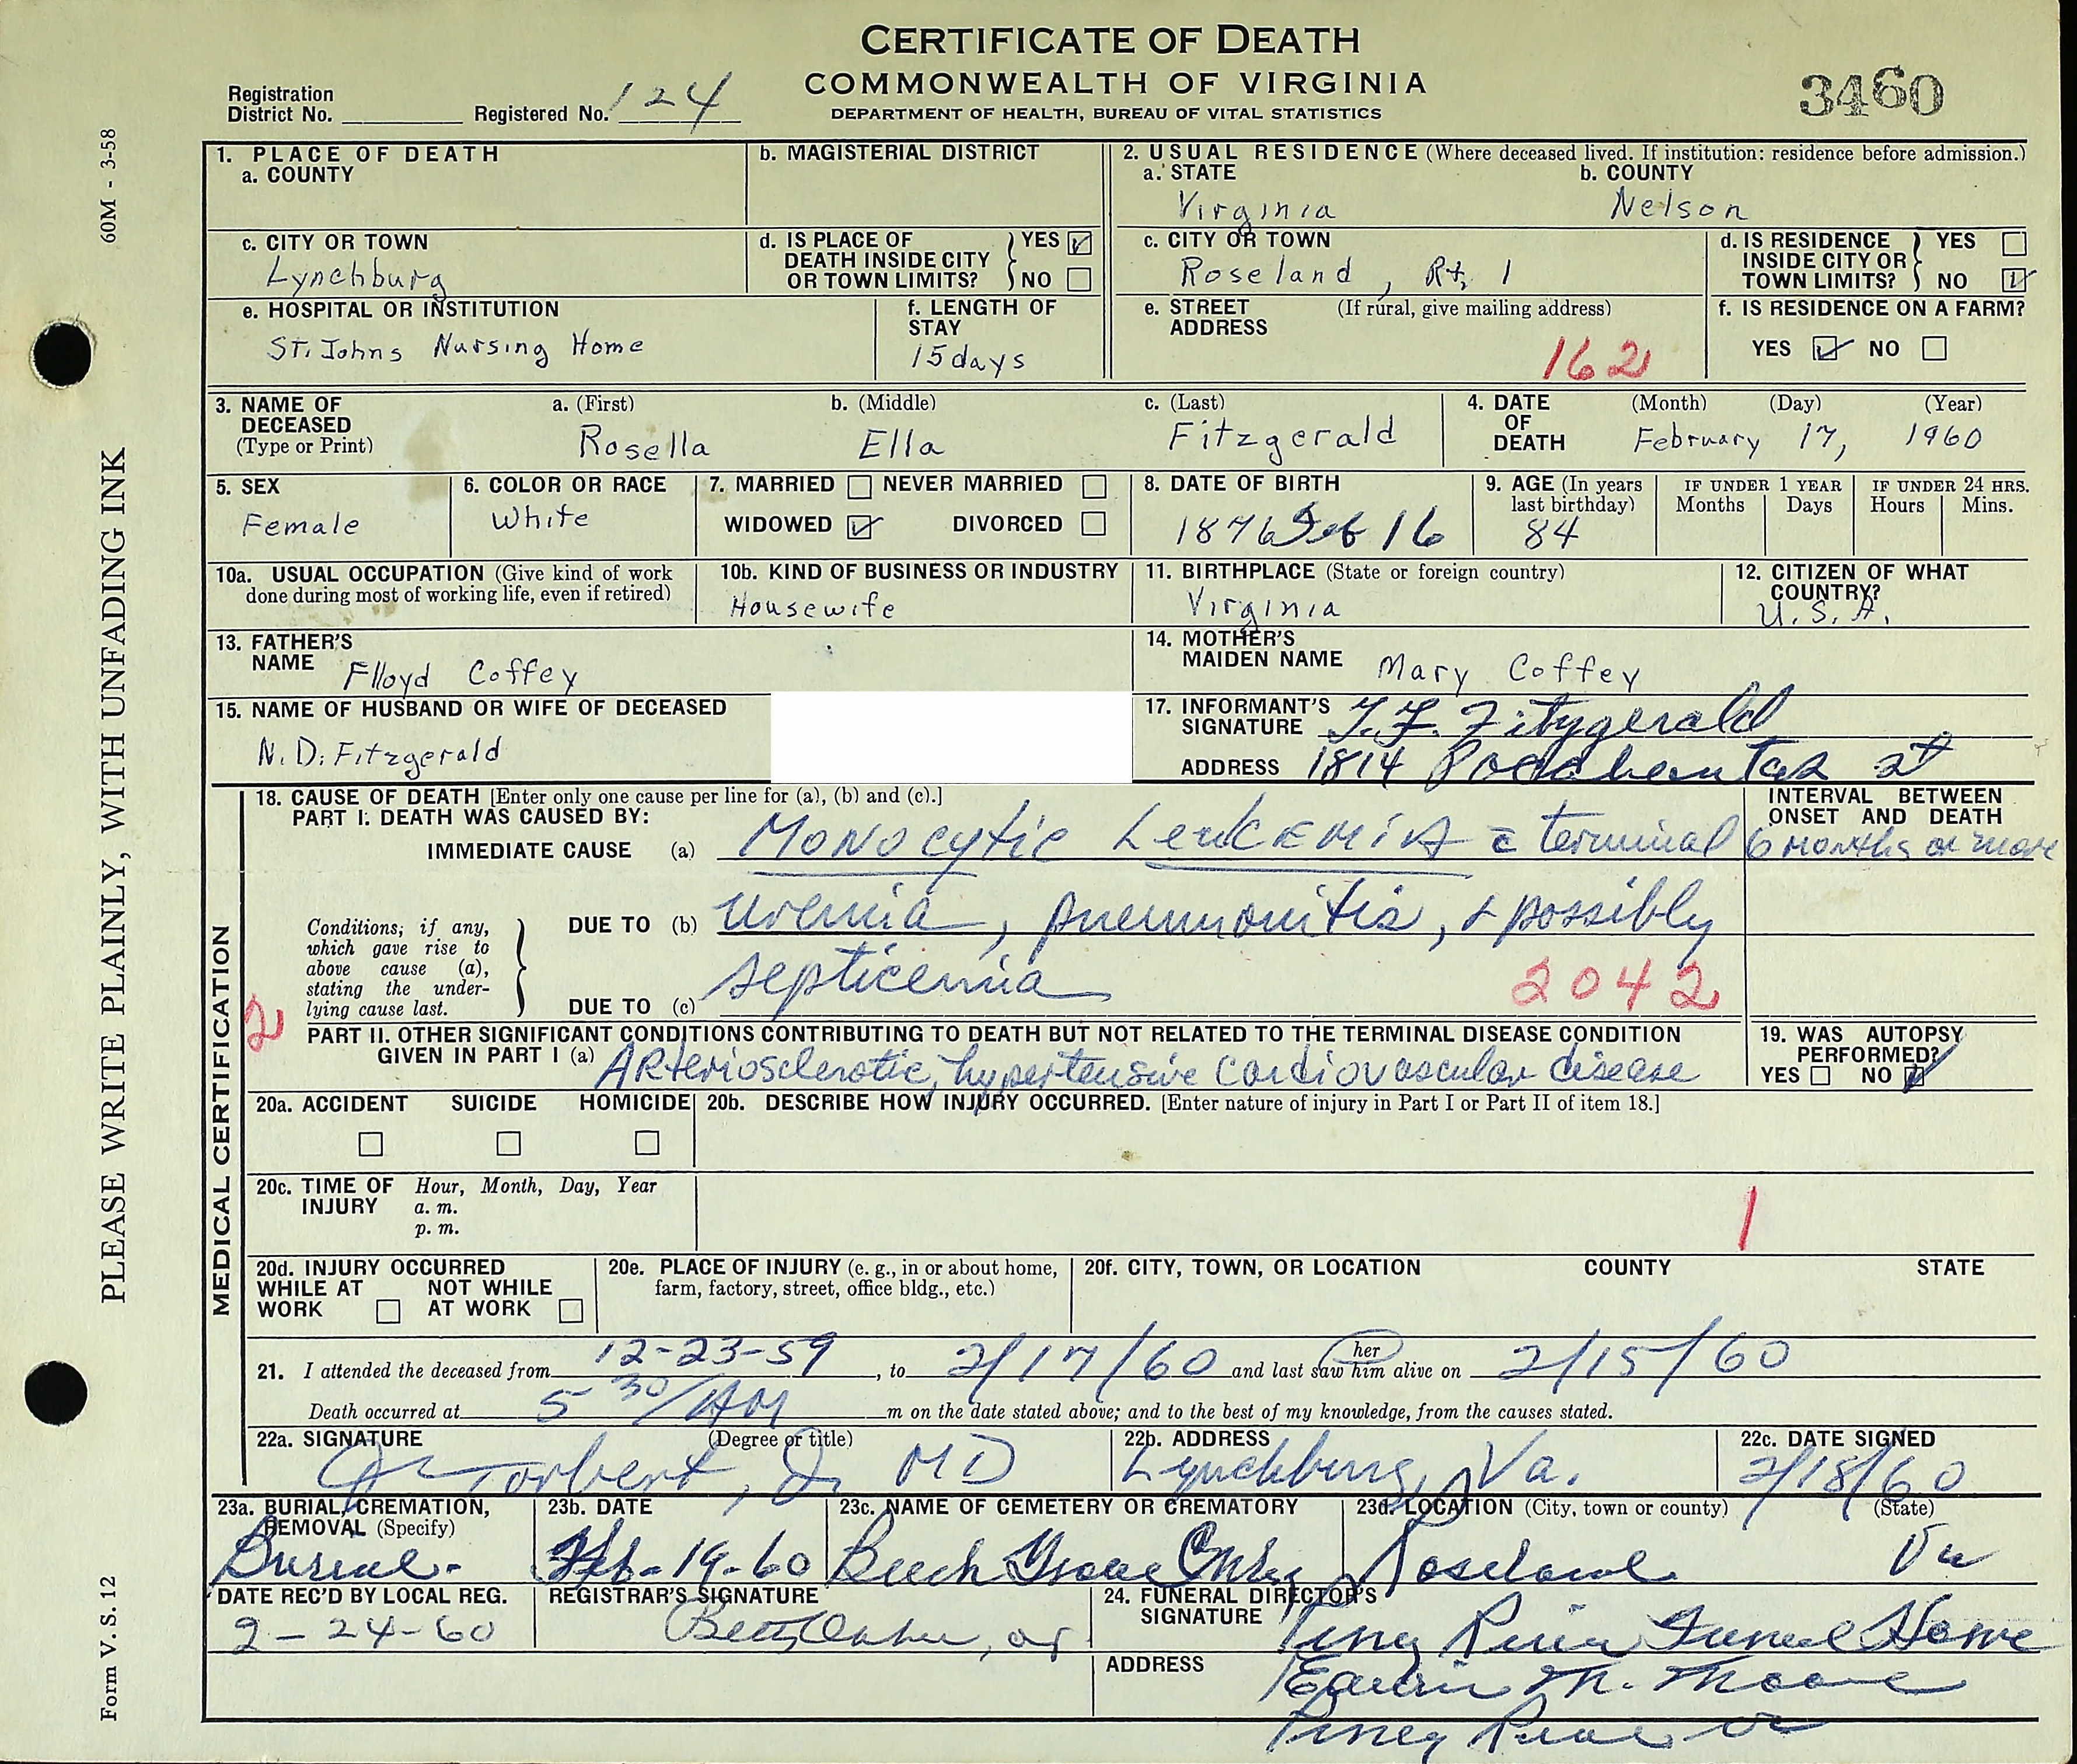 CERTIFICATE OF DEATH
COMMONWEALTH OF VIRGINIA
DEPARTMENT OF HEALTH, BUREAU OF VITAL STATISTICS
3460
Registration District No. Registered No. 124
60M - 3-58
PLEASE WRITE PLAINLY, WITH UNFADING INK
Form V. S. 12
1. PLACE OF DEATH
a. COUNTY
b. MAGISTERIAL DISTRICT
2. USUAL RESIDENCE (Where deceased lived. If institution: residence before admission.)
a. STATE Virginia
b. COUNTY Nelson
c. CITY OR TOWN Lynchburg
d. IS PLACE OF DEATH INSIDE CITY OR TOWN LIMITS? YES NO
c. CITY OR TOWN Roseland, Rt, 1
d. IS RESIDENCE INSIDE CITY OR TOWN LIMITS? YES NO
e. HOSPITAL OR INSTITUTION St. Johns Nursing Home
f. LENGTH OF STAY 15 days
e. STREET ADDRESS (If rural, give mailing address)
162
f. IS RESIDENCE ON A FARM? YES NO
3. NAME OF DECEASED (Type or Print)
a. (First) Rosella
b. (Middle) Ella
c. (Last) Fitzgerald
4. DATE OF DEATH (Month) (Day) (Year)
February 17, 1960
5. SEX Female
6. COLOR OR RACE White
7. MARRIED NEVER MARRIED
WIDOWED DIVORCED
8. DATE OF BIRTH 1876 Feb 16
9. AGE (In years last birthday) 84
IF UNDER 1 YEAR Months Days
IF UNDER 24 HRS. Hours Mins.
10a. USUAL OCCUPATION (Give kind of work done during most of working life, even if retired)
10b. KIND OF BUSINESS OR INDUSTRY
Housewife
11. BIRTHPLACE (State or foreign country) Virginia
12. CITIZEN OF WHAT COUNTRY? U. S. A.
13. FATHER'S NAME Flloyd Coffey
14. MOTHER'S MAIDEN NAME Mary Coffey
15. NAME OF HUSBAND OR WIFE OF DECEASED
N. D. Fitzgerald
17. INFORMANT'S SIGNATURE Fitzgerald
ADDRESS 1814 Pocahontas St
18. CAUSE OF DEATH [Enter only one cause per line for (a), (b) and (c).]
PART I. DEATH WAS CAUSED BY:
INTERVAL BETWEEN ONSET AND DEATH
IMMEDIATE CAUSE (a) Monocytic Leukemia c terminal 6 months or more
Conditions, if any, which gave rise to above cause (a), stating the underlying cause last.
DUE TO (b) uremia, pneumonitis, & possibly
DUE TO (c) septicemia
2042
2
PART II. OTHER SIGNIFICANT CONDITIONS CONTRIBUTING TO DEATH BUT NOT RELATED TO THE TERMINAL DISEASE CONDITION
GIVEN IN PART I (a) Arteriosclerotic, hypertensive cardiovascular disease
19. WAS AUTOPSY PERFORMED? YES NO
MEDICAL CERTIFICATION
20a. ACCIDENT SUICIDE HOMICIDE
20b. DESCRIBE HOW INJURY OCCURRED. [Enter nature of injury in Part I or Part II of item 18.]
20c. TIME OF INJURY Hour, Month, Day, Year
a. m.
p. m.
1
20d. INJURY OCCURRED
WHILE AT WORK NOT WHILE AT WORK
20e. PLACE OF INJURY (e. g., in or about home, farm, factory, street, office bldg., etc.)
20f. CITY, TOWN, OR LOCATION COUNTY STATE
21. I attended the deceased from 12-23-59, to 2/17/60 and last saw him her alive on 2/15/60
Death occurred at 5 30/AM m on the date stated above; and to the best of my knowledge, from the causes stated.
22a. SIGNATURE (Degree or title)
Torbert, Jr. MD
22b. ADDRESS Lynchburg, Va.
22c. DATE SIGNED 2/18/60
23a. BURIAL, CREMATION, REMOVAL (Specify) Burial-
23b. DATE Feb-19-60
23c. NAME OF CEMETERY OR CREMATORY Beech Grove
23d. LOCATION (City, town or county) (State)
Roseland Va
DATE REC'D BY LOCAL REG. 2-24-60
REGISTRAR'S SIGNATURE Betty
24. FUNERAL DIRECTOR'S SIGNATURE Piney River Funeral Home
Edwin M. Moore
ADDRESS
Piney River Va